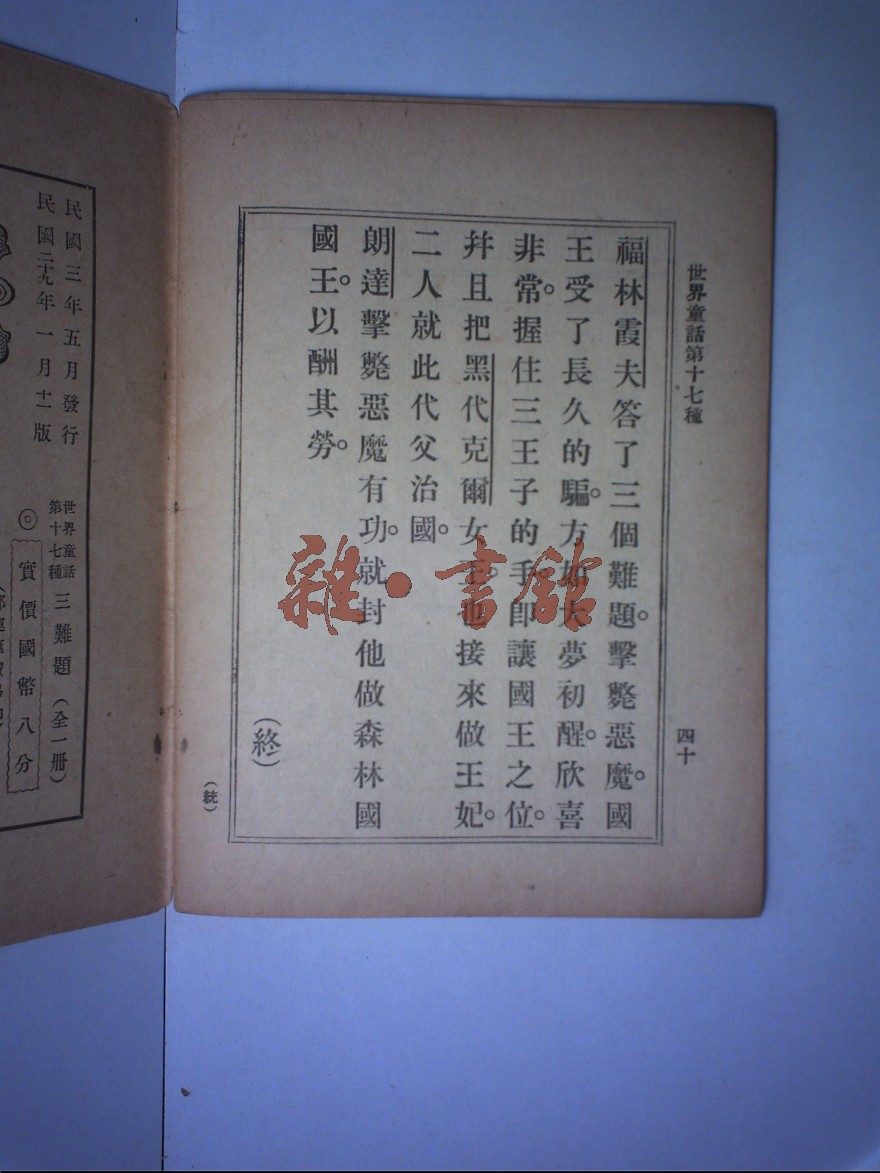 世界童話第十七種
四十
福林霞夫答了三個難題。擊斃惡魔。國
王受了長久的騙。方如大夢初醒。欣喜
非常。握住三王子的手。卽讓國王之位。
幷且把黑代克爾女王。也接來做王妃。
二人就此代父治國。
朗達擊斃惡魔有功。就封他做森林國
國王。以酬其勞。
(終)
(統)
雜·書館
民國三年五月發行
民國二十九年一月十一版
世界童話
第十七種
三難題(全一冊)
◎實價國幣八分